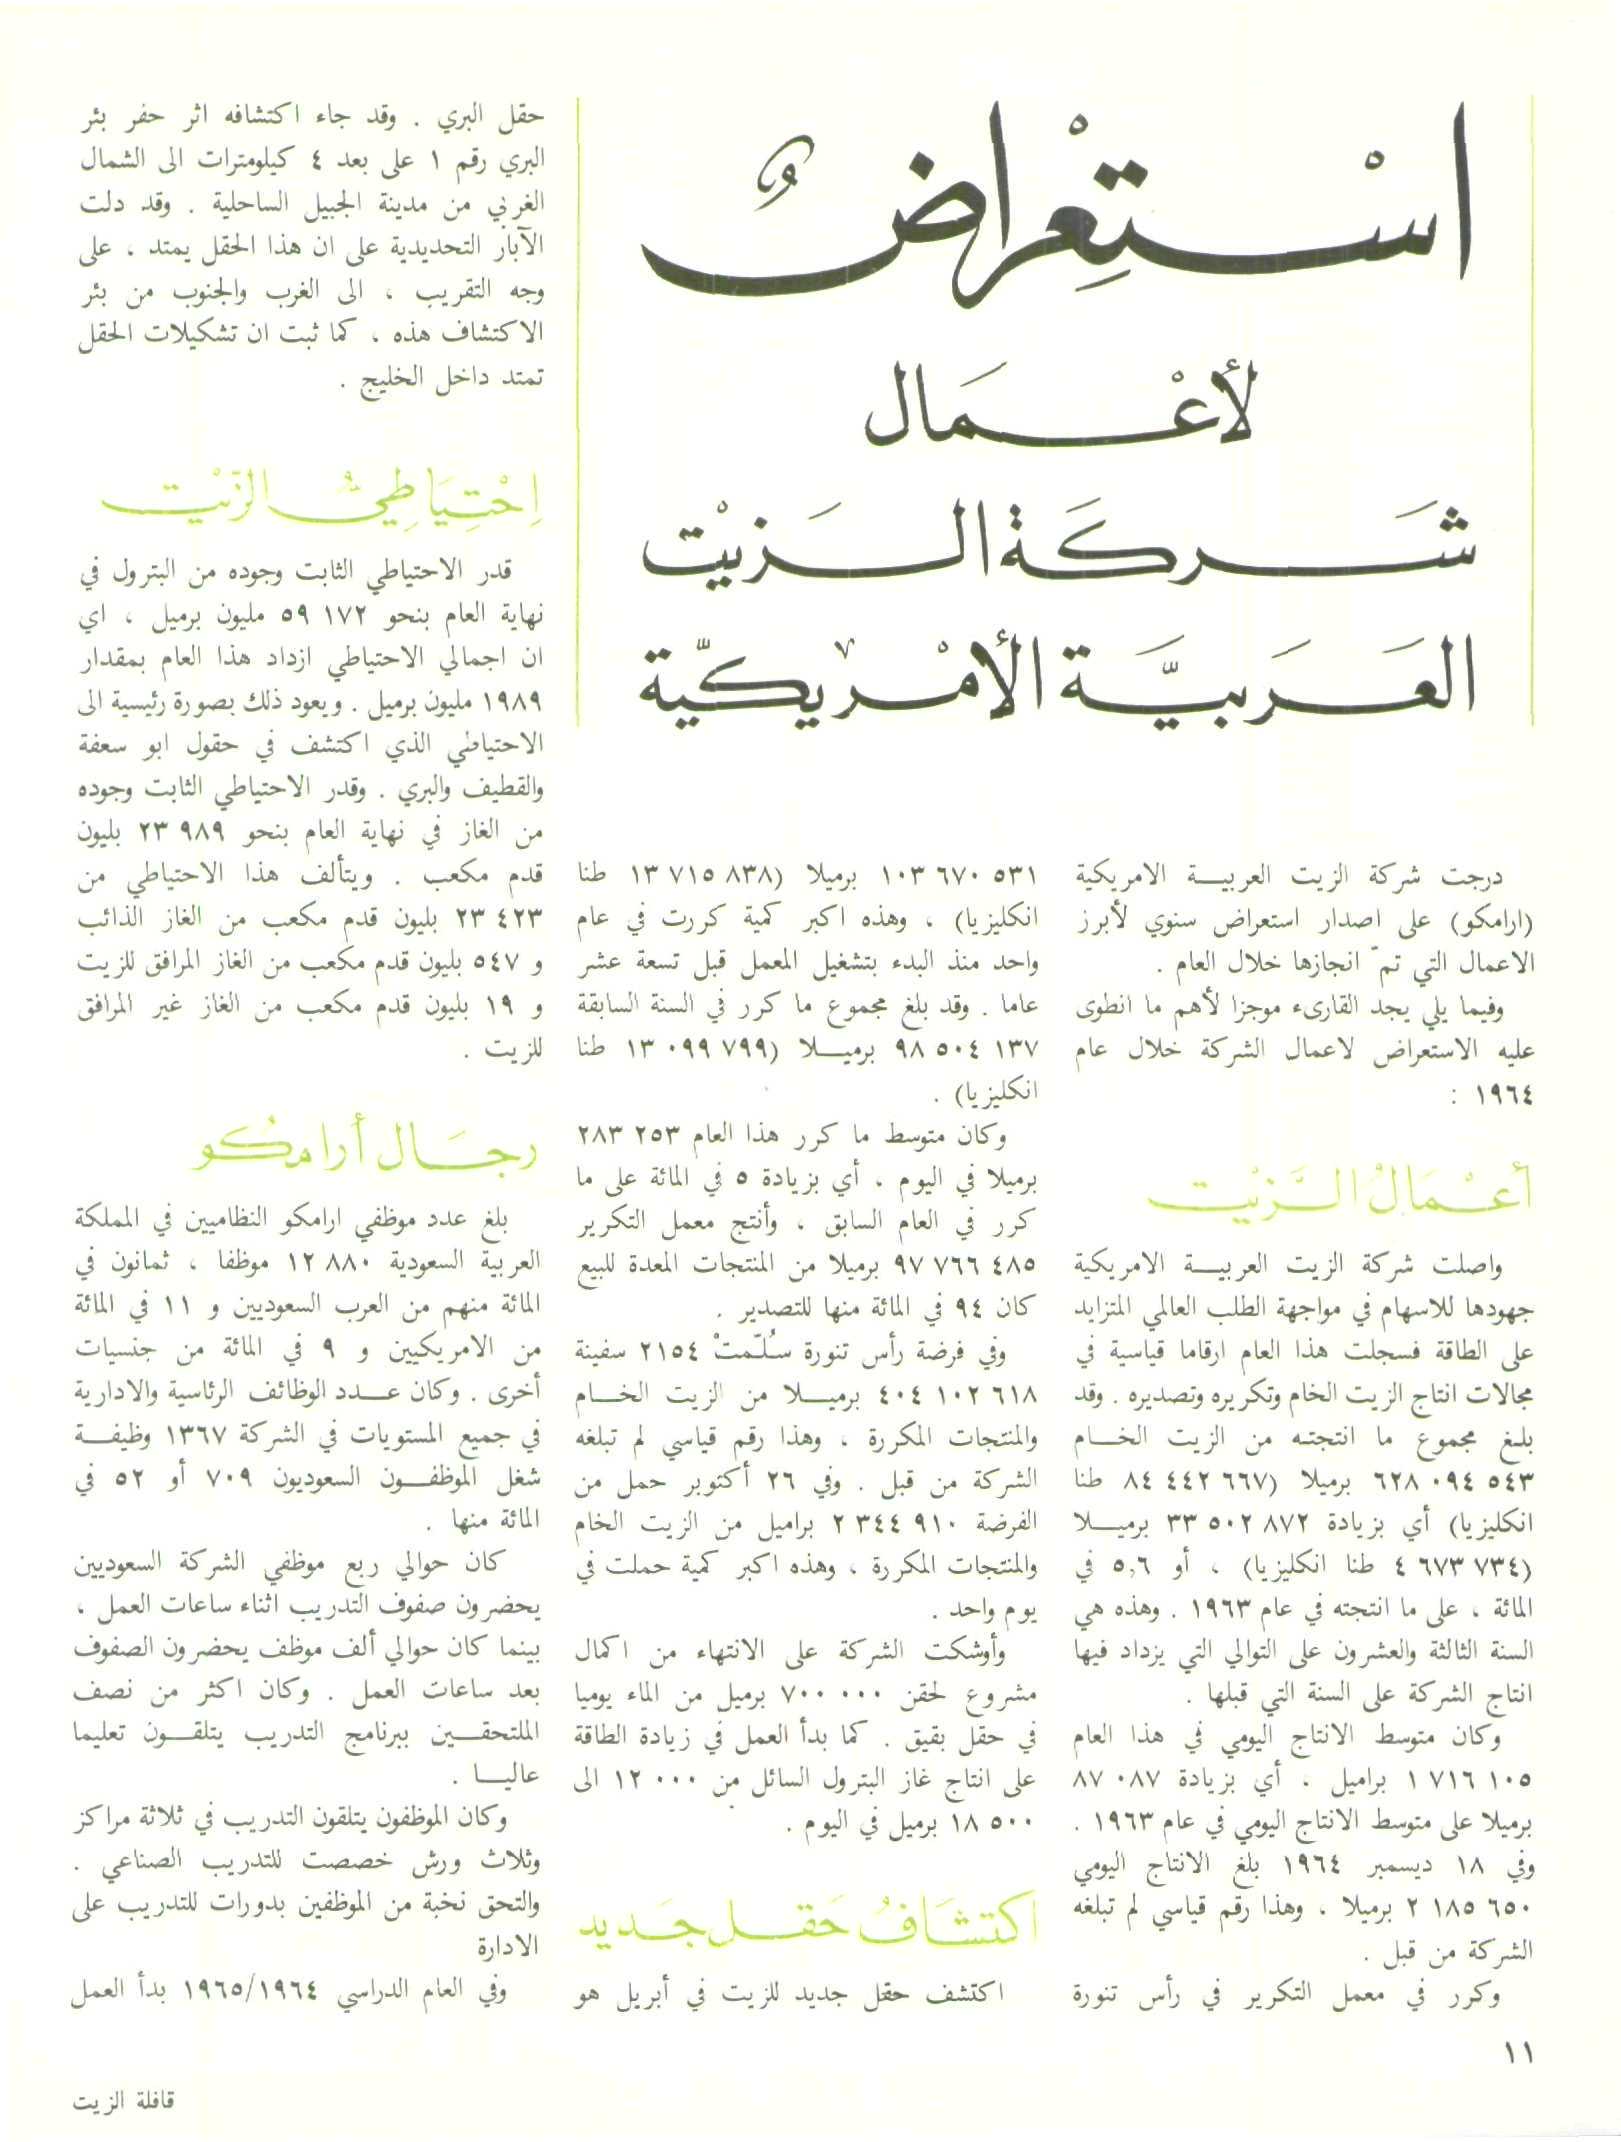 استعراض
لأعمال
شركة الزيت
العربية الأمريكية
درجت شركة الزيت العربية الامريكية
(ارامكو) على اصدار استعراض سنوي لأبرز
الاعمال التي تمّ انجازها خلال العام .
وفيما يلي يجد القارىء موجزا لأهم ما انطوى
عليه الاستعراض لاعمال الشركة خلال عام
١٩٦٤ :
أعمال الزيت
واصلت شركة الزيت العربية الامريكية
جهودها للاسهام في مواجهة الطلب العالمي المتزايد
على الطاقة فسجلت هذا العام ارقاما قياسية في
مجالات انتاج الزيت الخام وتكريره وتصديره . وقد
بلغ مجموع ما انتجته من الزيت الخام
٦٢٨ ٠٩٤ ٥٤٣ برميلا (٨٤ ٤٤٢ ٦٦٧ طنا
انكليزيا) أي بزيادة ٣٣ ٥٠٢ ٨٧٢ برميلا
(٤ ٦٧٣ ٧٣٤ طنا انكليزيا) ، أو ٥,٦ في
المائة ، على ما انتجته في عام ١٩٦٣ . وهذه هي
السنة الثالثة والعشرون على التوالي التي يزداد فيها
انتاج الشركة على السنة التي قبلها .
وكان متوسط الانتاج اليومي في هذا العام
١ ٧١٦ ١٠٥ براميل ، أي بزيادة ٨٧ ٠٨٧
برميلا على متوسط الانتاج اليومي في عام ١٩٦٣ .
وفي ١٨ ديسمبر ١٩٦٤ بلغ الانتاج اليومي
٢ ١٨٥ ٦٥٠ برميلا ، وهذا رقم قياسي لم تبلغه
الشركة من قبل .
وكرر في معمل التكرير في رأس تنورة
١٠٣ ٦٧٠ ٥٣١ برميلا (١٣ ٧١٥ ٨٣٨ طنا
انكليزيا) ، وهذه اكبر كمية كررت في عام
واحد منذ البدء بتشغيل المعمل قبل تسعة عشر
عاما . وقد بلغ مجموع ما كرر في السنة السابقة
٩٨ ٥٠٤ ١٣٧ برميلا (١٣ ٠٩٩ ٧٩٩ طنا
انكليزيا) .
وكان متوسط ما كرر هذا العام ٢٨٣ ٢٥٣
برميلا في اليوم ، أي بزيادة ٥ في المائة على ما
كرر في العام السابق ، وأنتج معمل التكرير
٩٧ ٧٦٦ ٤٨٥ برميلا من المنتجات المعدة للبيع
كان ٩٤ في المائة منها للتصدير .
وفي فرضة رأس تنورة سُلّمتْ ٢١٥٤ سفينة
٤٠٤ ١٠٢ ٦١٨ برميلا من الزيت الخام
والمنتجات المكررة ، وهذا رقم قياسي لم تبلغه
الشركة من قبل . وفي ٢٦ أكتوبر حمل من
الفرضة ٢ ٣٤٤ ٩١٠ براميل من الزيت الخام
والمنتجات المكررة ، وهذه اكبر كمية حملت في
يوم واحد .
وأوشكت الشركة على الانتهاء من اكمال
مشروع لحقن ٧٠٠ ٠٠٠ برميل من الماء يوميا
في حقل بقيق . كما بدأ العمل في زيادة الطاقة
على انتاج غاز البترول السائل من ١٢ ٠٠٠ الى
١٨ ٥٠٠ برميل في اليوم .
اكتشاف حقل جديد
اكتشف حقل جديد للزيت في أبريل هو
حقل البري . وقد جاء اكتشافه اثر حفر بئر
البري رقم ١ على بعد ٤ كيلومترات الى الشمال
الغربي من مدينة الجبيل الساحلية . وقد دلت
الآبار التحديدية على ان هذا الحقل يمتد ، على
وجه التقريب ، الى الغرب والجنوب من بئر
الاكتشاف هذه ، كما ثبت ان تشكيلات الحقل
تمتد داخل الخليج .
إحتياطي الزيت
قدر الاحتياطي الثابت وجوده من البترول في
نهاية العام بنحو ٥٩ ١٧٢ مليون برميل ، اي
ان اجمالي الاحتياطي ازداد هذا العام بمقدار
١٩٨٩ مليون برميل . ويعود ذلك بصورة رئيسية الى
الاحتياطي الذي اكتشف في حقول ابو سعفة
والقطيف والبري . وقدر الاحتياطي الثابت وجوده
من الغاز في نهاية العام بنحو ٢٣ ٩٨٩ بليون
قدم مكعب . ويتألف هذا الاحتياطي من
٢٣ ٤٢٣ بليون قدم مكعب من الغاز الذائب
و ٥٤٧ بليون قدم مكعب من الغاز المرافق للزيت
و ١٩ بليون قدم مكعب من الغاز غير المرافق
للزيت .
رجال أرامكو
بلغ عدد موظفي ارامكو النظاميين في المملكة
العربية السعودية ١٢ ٨٨٠ موظفا ، ثمانون في
المائة منهم من العرب السعوديين و ١١ في المائة
من الامريكيين و ٩ في المائة من جنسيات
أخرى . وكان عدد الوظائف الرئاسية والادارية
في جميع المستويات في الشركة ١٣٦٧ وظيفة
شغل الموظفون السعوديون ٧٠٩ أو ٥٢ في
المائة منها .
كان حوالي ربع موظفي الشركة السعوديين
يحضرون صفوف التدريب اثناء ساعات العمل ،
بينما كان حوالي ألف موظف يحضرون الصفوف
بعد ساعات العمل . وكان اكثر من نصف
الملتحقين ببرنامج التدريب يتلقون تعليما
عاليا .
وكان الموظفون يتلقون التدريب في ثلاثة مراكز
وثلاث ورش خصصت للتدريب الصناعي .
والتحق نخبة من الموظفين بدورات للتدريب على
الادارة
وفي العام الدراسي ١٩٦٥/١٩٦٤ بدأ العمل
١١
قافلة الزيت